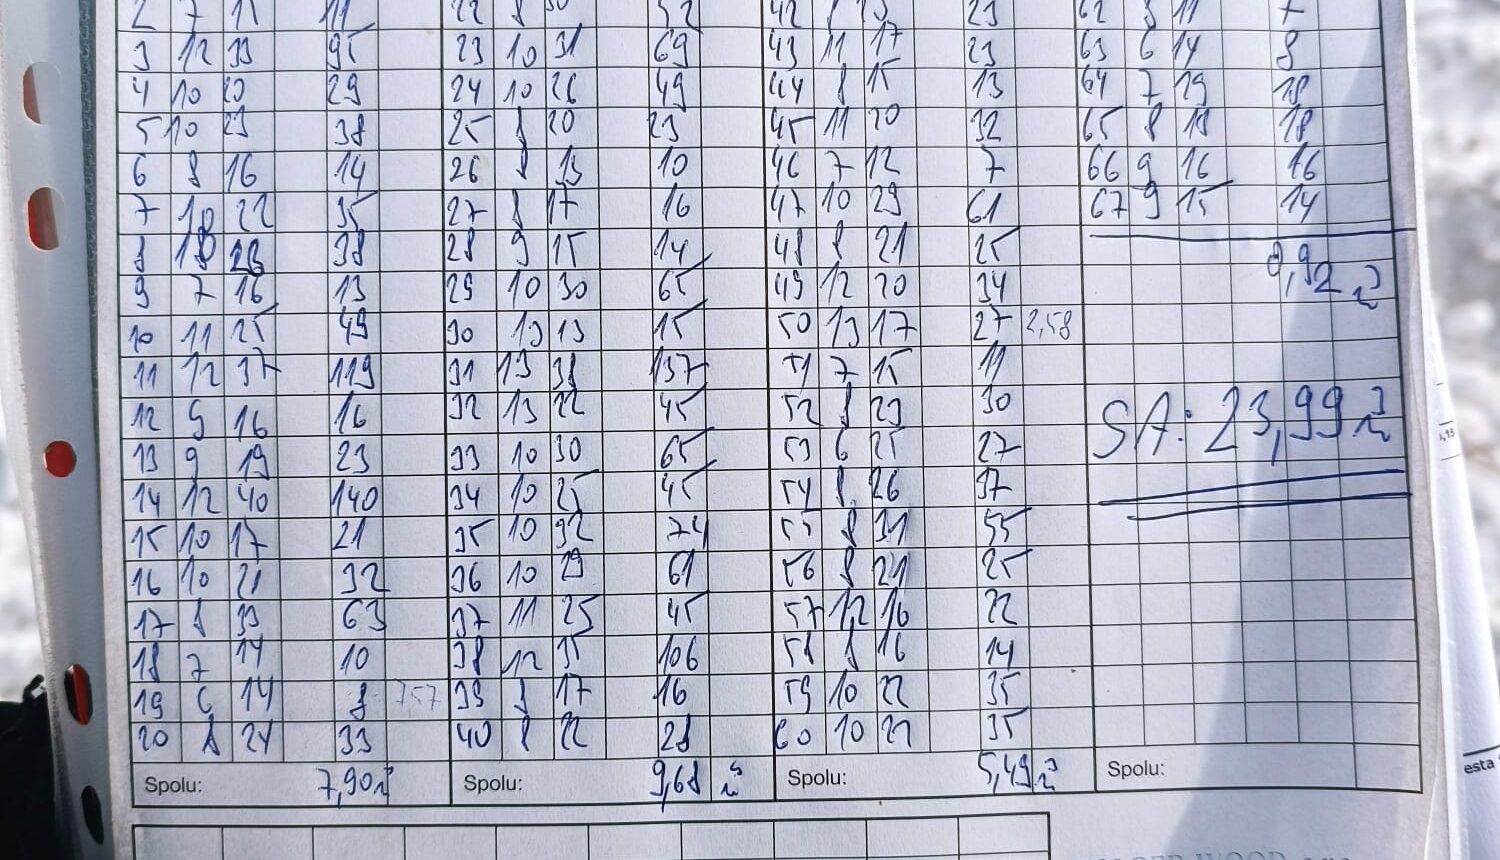 2 7 15 11 22 8 30 52 42 8 23 62 8 11 7
3 12 33 95 23 10 31 69 43 11 17 23 63 6 14 8
4 10 20 29 24 10 26 49 44 8 15 13 64 7 19 18
5 10 23 38 25 8 20 23 45 11 20 32 65 8 18 18
6 8 16 14 26 8 13 10 46 7 12 7 66 9 16 16
7 10 22 35 27 8 17 16 47 10 29 61 67 9 15 14
8 10 23 38 28 9 15 14 48 8 21 25
9 7 16 13 29 10 30 65 49 12 20 34 0,92 m³
10 11 25 49 30 13 13 15 50 13 17 27 2,58
11 12 37 119 31 13 38 137 51 7 15 11
12 9 16 16 32 13 22 45 52 8 23 30 SA: 23,99 m³
13 9 19 23 33 10 30 65 53 6 25 27
14 12 40 140 34 10 25 45 54 8 26 37
15 10 17 21 35 10 32 74 55 8 31 55
16 10 21 32 36 10 29 61 56 8 21 25
17 8 33 63 37 11 25 45 57 12 16 22
18 7 14 10 38 12 35 106 58 8 16 14
19 6 14 8 757 39 8 17 16 59 10 22 35
20 8 24 33 40 8 22 28 60 10 22 35
Spolu: 7,90 m³ Spolu: 9,68 m³ Spolu: 5,49 m³ Spolu:
esta